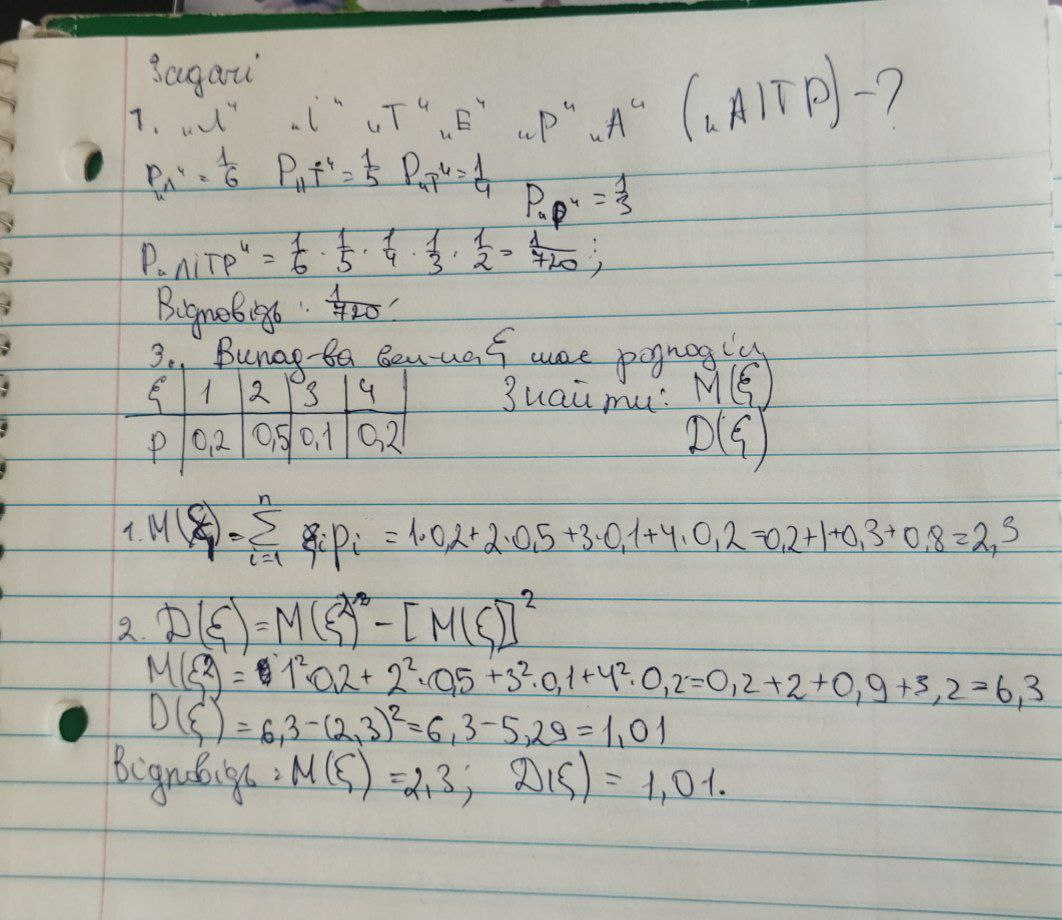 Задачі
1. „Л“ „І“ „Т“ „Е“ „Р“ „А“ („ЛІТР) - ?
P„Л“ = 1/6 P„І“ = 1/5 P„Т“ = 1/4
P„Р“ = 1/3
P„ЛІТР“ = 1/6 · 1/5 · 1/4 · 1/3 · 1/2 = 1/720;
Відповідь: 1/720.
3. Випад-ва вел-на ξ має розподіл
ξ 1 2 3 4 Знайти: M(ξ)
P 0,2 0,5 0,1 0,2 D(ξ)
1. M(ξ) = ∑ⁿᵢ₌₁ ξᵢpᵢ = 1·0,2+2·0,5+3·0,1+4·0,2=0,2+1+0,3+0,8=2,3
2. D(ξ) = M(ξ²) - [M(ξ)]²
M(ξ²) = 1²·0,2 + 2²·0,5 + 3²·0,1 + 4²·0,2 = 0,2 + 2 + 0,9 + 3,2 = 6,3
D(ξ) = 6,3-(2,3)² = 6,3 - 5,29 = 1,01
Відповідь: M(ξ) = 2,3; D(ξ) = 1,01.